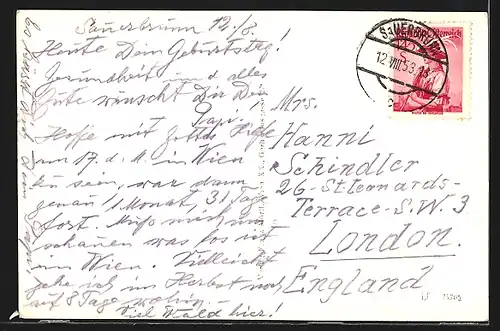 Sauerbrunn 12./8.
Heute Dein Geburtstag!
Gesundheit und alles
Gute wünscht Dir Dein
Papi.
Hoffe mit Gottes Hilfe
am 17. d. M. in Wien
zu sein, war dann
genau 1 Monat, 31 Tage
fort. Muß mich um-
schauen was los ist
in Wien. Vielleicht
gehe ich im Herbst noch
auf 8 Tage wohin.
Viel Wald hier!
Es küsst Dich Dein
Mrs.
Hanni
Schindler
26-St. Leonards-
Terrace-S.W.3
London.
England
SAUERBRUNN
12.VIII.53
Österreich